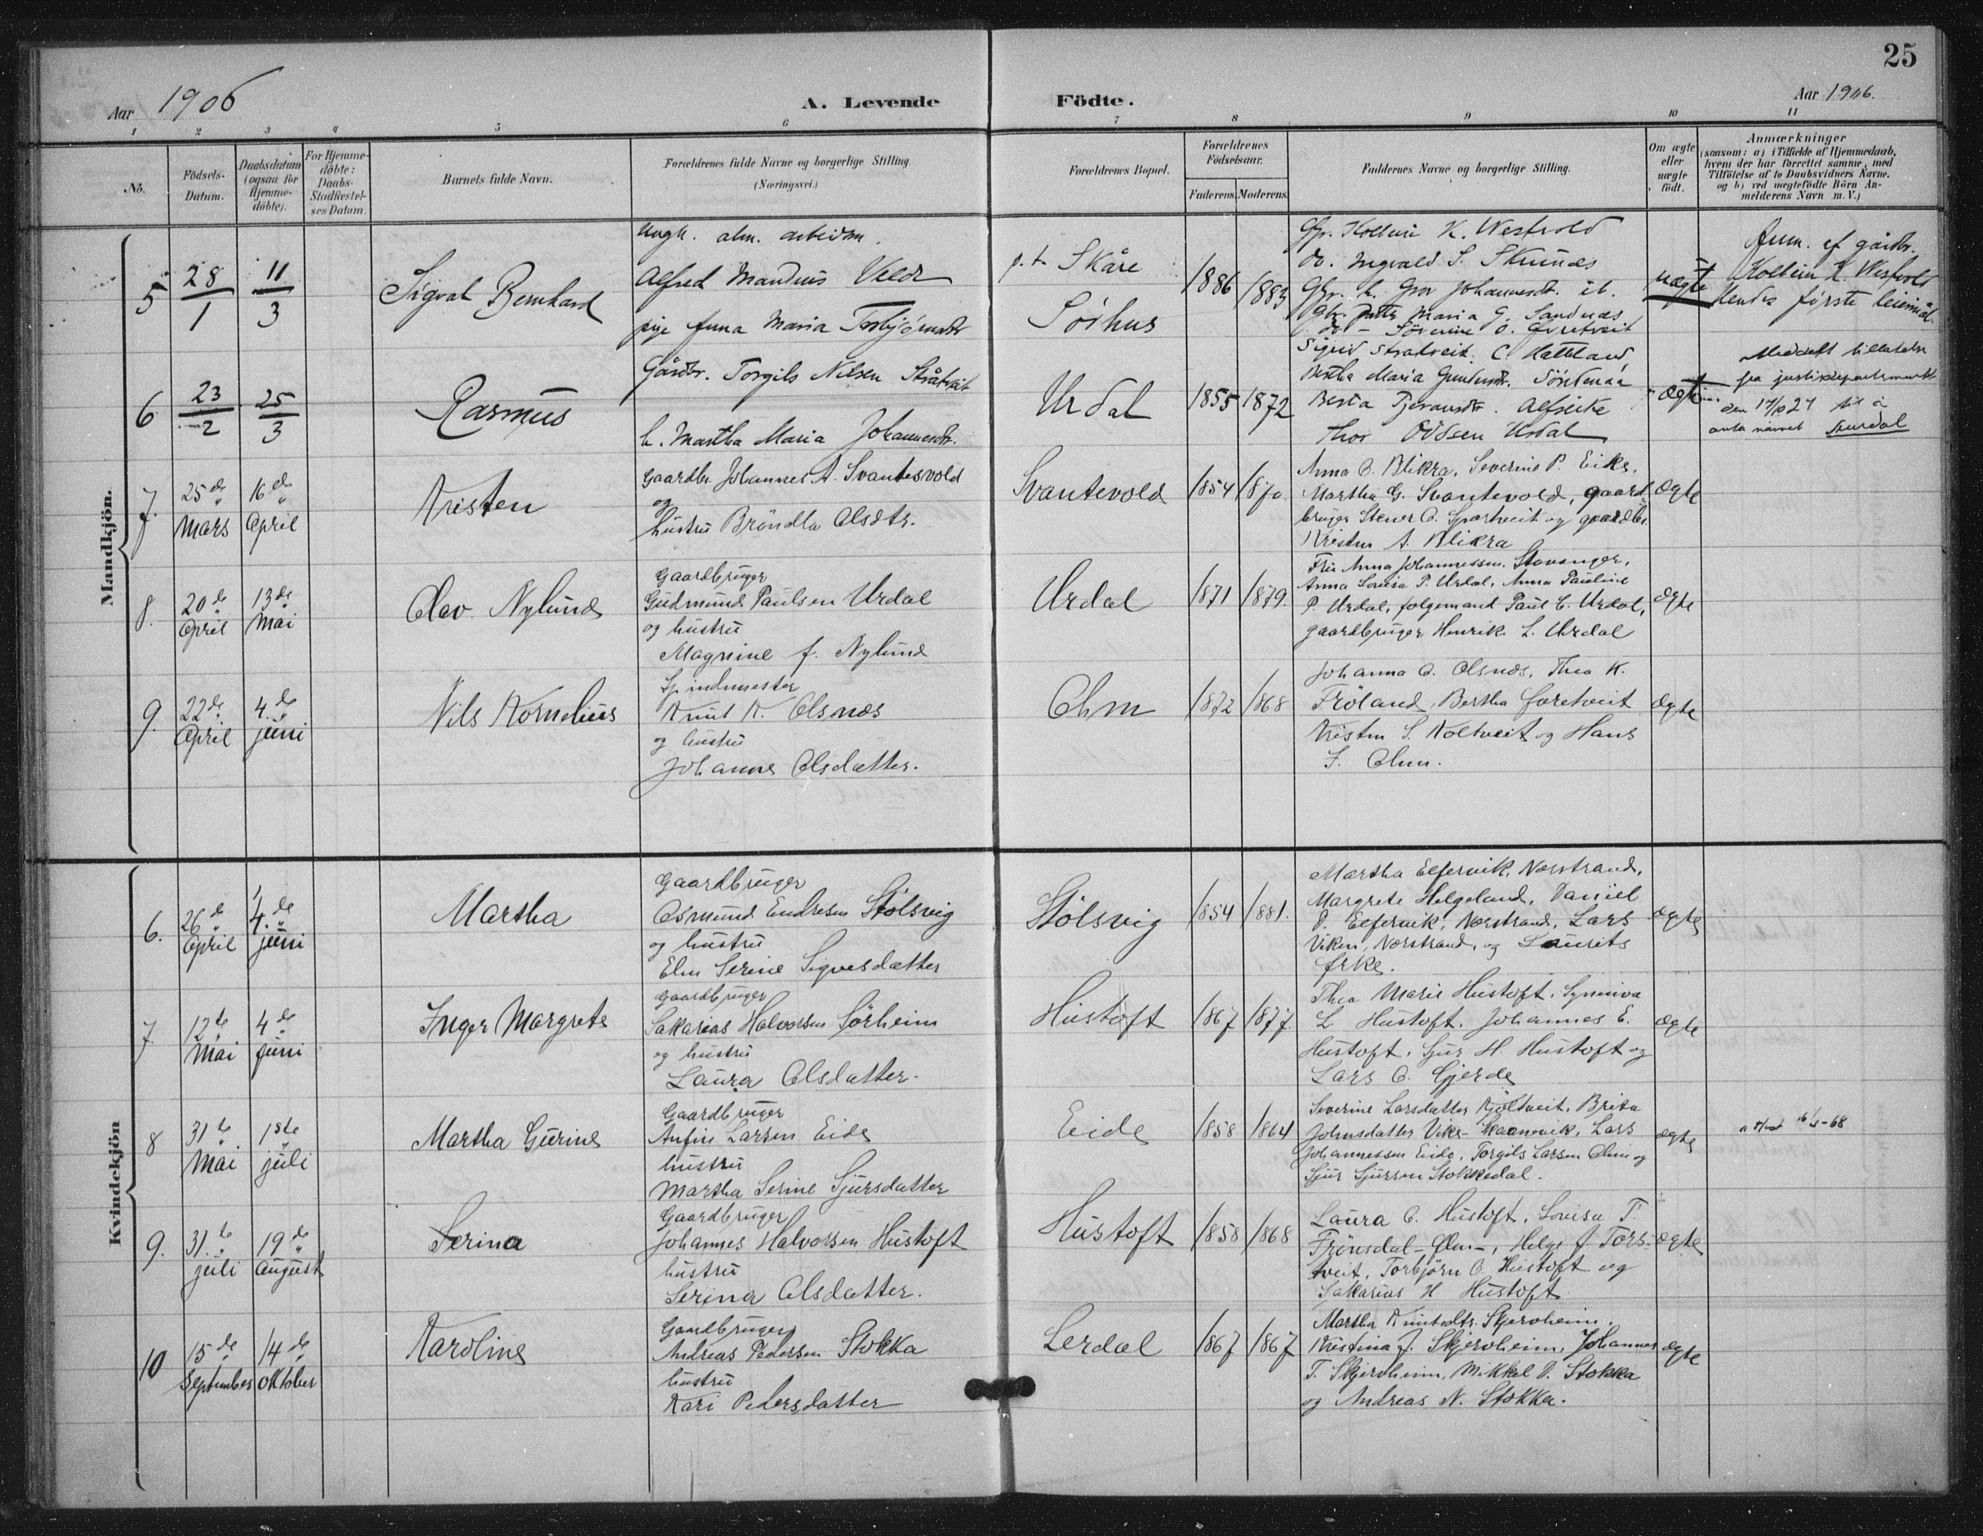 25
Aar 1906
A. Levende
Födte.
Aar 1906.
1 2 3 4 5 6 7 8 9 10 11
No.
Födsels-
Datum.
Daabsdatum
(ogsaa for
Hjemme-
döbte).
For Hjemme-
döbte:
Daabs-
Stadfæstel-
ses Datum.
Barnets fulde Navn.
Forældrenes fulde Navne og borgerlige Stilling
(Næringsvei.)
Forældrenes Bopæl.
Forældrenes
Födselsaar.
Faderens.
Moderens.
Faddernes Navne og borgerlige Stilling.
Om ægte
eller
uægte
født.
Anmærkninger
(saasom: a) i Tilfælde af Hjemmedaab,
hvem der har forrettet samme, med
Tilföielse af to Daabsvidners Navne.
og b) ved uægtefödte Börn An-
melderens Navn m. V.)
Mandkjön.
5
28/1
11/3
Sigval Bernhard
Ungk. alm. arbeidsm.
Alfred Mandius
pige Anna Maria Torbjørnsdtr
p.t. Skåre
Sørhus
1886
1883
Gbr. Kolbein K. Westvold
do. Ingvald S.
Gbr. h. Johannesdt.
Maria G. Sandnæs
do - Søverine O.
uægte
Anm. af gårdbr.
Kolbein K. Westvold
Hendes første leiermål.
6
23/2
25/3
Rasmus
Gårdbr. Torgils Nilsen Stråtveit
h. Martha Maria Johannesdtr.
Urdal
1855
1872
Sigrid Stratveit. C. Hattland
Bertha Maria Gundersdt.
Berta
Thor Oddsen Urdal
ægte
Meddelt tillatelse
fra justisdepartementet
den til å
anta navnet
7.
25de Mars
16de April
Kristen
Gaardbr. Johannes A. Svantesvold
og
hustru Bröndla Olsdtr.
Svantevold
1854
1870.
Anna O. Blikra, Severine P. Eike,
Martha G. Svantevold, gaard
bruger Stener O. Spartveit og gaardbr.
Kristen A. Blikra
ægte
8.
20de April
13de Mai
Olav Nylund
Gaardbruger
Gudmund Paulsen Urdal
og hustru
Magnine f. Nylund
Urdal
1871
1879.
Fru Anna Johannessen. Stavanger,
Anna Lovisa P. Urdal, Anna Pauline
P. Urdal, folgemand Paul C. Urdal,
gaardbruger Henrik L. Urdal
ægte
9.
22de April
4.de juni
Nils Kornelius
Knut K. Olsnæs
og hustru
Johanne Olsdatter.
Ohm
1872
1868
Johanna O. Olsnæs, Thea K.
Fröland, Bertha
Kristen S. Koltveit og Hans
S. Ohm.
ægte
Kvindekjön
6.
26de April
4.de juni
Martha
Gaardbruger
Osmund Endresen Stölsvig
og hustru
Elen Serine Sigvesdatter
Stölsvig
1854
1881.
Martha Elfervik, Norstrand,
Margrete Helgeland, Daniel
P. Elfervik, Norstrand, Lars
Viken, Norstrand, og Laurits
ægte
7
12te Mai
4de juni
Inger Margrete
Gaardbruger
Sakarias Halvorsen Sørheim
og hustru
Laura Olsdatter.
Hustoft
1867
1877.
Thea Marie Hustoft, Synniva
L. Hustoft, Johannes E.
Hustoft, Sjur H. Hustoft og
Lars O. Gjerde
ægte
8
31te Mai
1ste juli
Martha Gurine
Gaardbruger
Anfin Larsen Eide
hustru
Martha Serine Sjursdatter
Eide
1858
1864
Severine Larsdatter Kjöltveit, Brita
Johnsdatter, Lars
Johannessen Eide, Torgils Larsen Ohm og
Sjur Sjursen Stokkedal.
ægte
9.
31.te juli
19de August
Serina
Gaardbruger
Johannes Halvorsen Hustoft
hustru
Serina Olsdatter.
Hustoft
1858
1868
Laura O. Hustoft, Lovisa T
Frönsdal, Helge Tors-
tveit, Torbjörn O. Hustoft og
Sakarias H Hustoft.
ægte
10
15de September
14de Oktober
Karoline
Gaardbruger
Andreas Pedersen Stokka
hustru
Kari Pedersdatter
Lerdal
1867
1867
Martha Knutsdtr. Skjervheim,
Kristina J. Skjervheim, Johannes
T. Skjervheim, Mikkel P. Stokka
og Andreas N. Stokka.
ægte